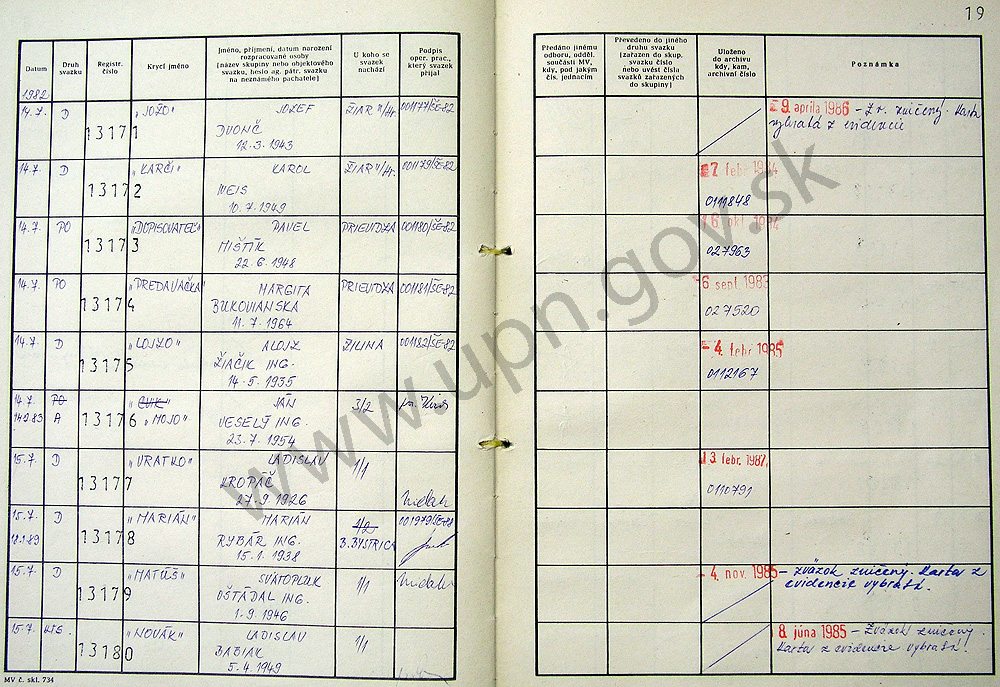 19
Datum
Druh svazku
Registr. číslo
Krycí jméno
Jméno, příjmení, datum narození
rozpracované osoby
(název skupiny nebo objektového
svazku, heslo ag. pátr. svazku
na neznámého pachatele)
U koho se
svazek
nachází
Podpis
oper. prac.,
který svazek
přijal
Předáno jinému
odboru, odděl.
součásti MV,
kdy, pod jakým
čís. jednacím
Převedeno do jiného
druhu svazku
(zařazen do skup.
svazku číslo
nebo uvést čísla
svazků zařazených
do skupiny)
Uloženo
do archivu
kdy, kam,
archivní číslo
Poznámka
1982
14.7. D 13171 "JOŽO" JOZEF ŽIAR n/Hr. 001177/ŠE-82
DVONČ
12.3.1943
9. apríla 1986 - Zv. zničený. Karta
vybratá z evidencie
14.7. D 13172 "KARČI" KAROL ŽIAR n/Hr. 001179/ŠE-82
WEIS
10.7.1949
27 febr 1984
0111848
14.7. PO 13173 "DOPISOVATEĽ" PAVEL PRIEVIDZA 001180/ŠE-82
MIŠTÍK
22.6.1948
6 okt. 1984
027963
14.7. PO 13174 "PREDAVAČKA" MARGITA PRIEVIDZA 001181/ŠE-82
BUKOVIANSKA
11.7.1964
6 sept. 1983
027520
14.7. D 13175 "LOJZO" ALOJZ ŽILINA 001182/ŠE-82
ŽIAČIK ING.
14.5.1935
- 4. febr 1985
0112167
14.7. PO 13176 "CVIK" JÁN 3/2
14.9.83 A "MOJO" VESELÝ ING.
23.7.1954
15.7. D 13177 "VRATKO" LADISLAV 1/1
KROPÁČ
27.9.1926
13. febr. 1987
0110791
15.7. D 13178 "MARIÁN" MARIÁN 4/2 001979/ŠE-88
18.1.89 RYBÁR ING. B.BYSTRICA
15.1.1938
15.7. D 13179 "MATÚŠ" SVÄTOPLUK 1/1
OŠŤÁDAL ING.
1.9.1946
- 4. nov. 1985 - Zväzok zničený. Karta z
evidencie vybratá.
15.7. 13180 "NOVÁK" LADISLAV 1/1
BABIAK
5.4.1949
8. júna 1985 - Zväzok zničený.
Karta z evidencie vybratá.
MV č. skl. 734
www.upn.gov.sk